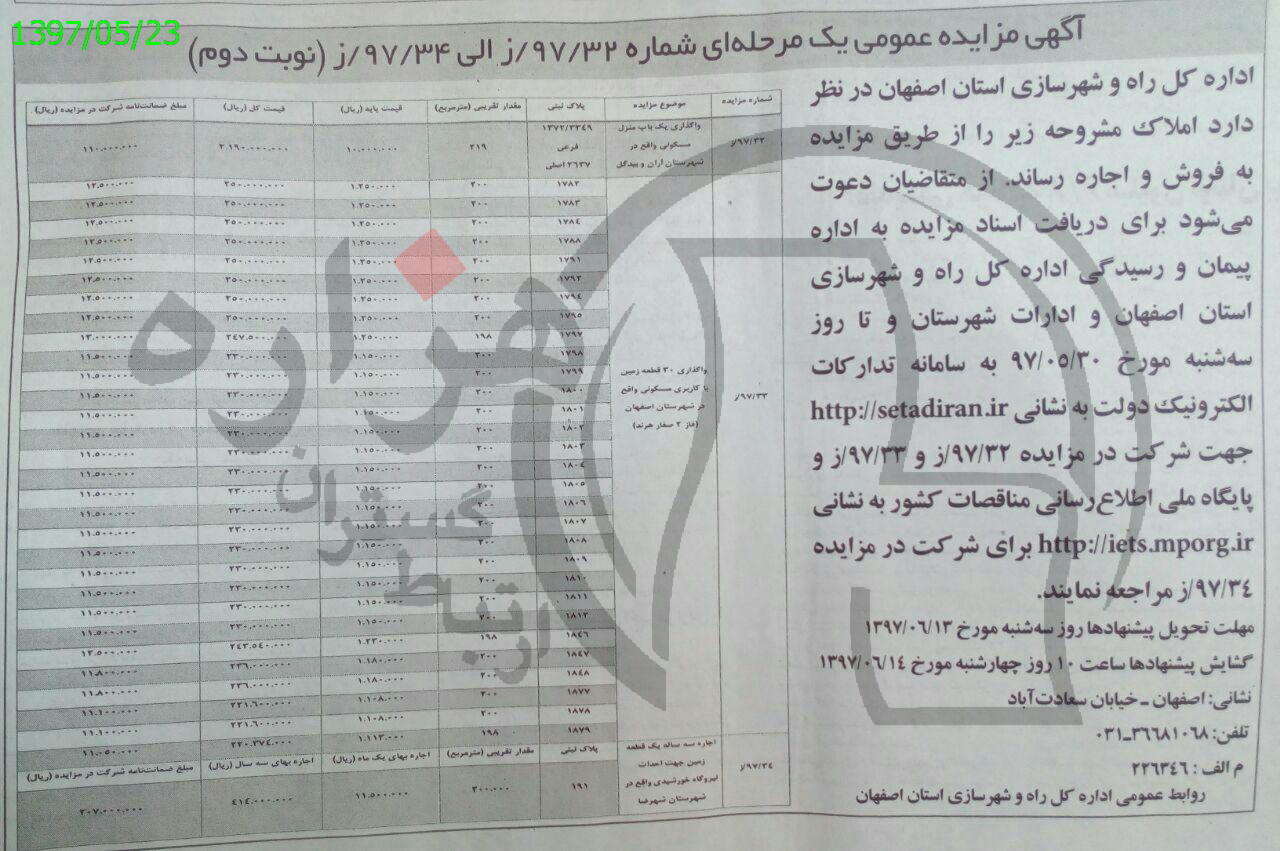 1397/05/23
آگهی مزایده عمومی یک مرحله‌ای شماره ۹۷/۳۲/ز الی ۹۷/۳۴/ز (نوبت دوم)
اداره کل راه و شهرسازی استان اصفهان در نظر
دارد املاک مشروحه زیر را از طریق مزایده
به فروش و اجاره رساند. از متقاضیان دعوت
می‌شود برای دریافت اسناد مزایده به اداره
پیمان و رسیدگی اداره کل راه و شهرسازی
استان اصفهان و ادارات شهرستان و تا روز
سه‌شنبه مورخ ۹۷/۰۵/۳۰ به سامانه تدارکات
الکترونیک دولت به نشانی http://setadiran.ir
جهت شرکت در مزایده ۹۷/۳۲/ز و ۹۷/۳۳/ز و
پایگاه ملی اطلاع‌رسانی مناقصات کشور به نشانی
http://iets.mporg.ir برای شرکت در مزایده
۹۷/۳۴/ز مراجعه نمایند.
مهلت تحویل پیشنهادها روز سه‌شنبه مورخ ۱۳۹۷/۰۶/۱۳
گشایش پیشنهادها ساعت ۱۰ روز چهارشنبه مورخ ۱۳۹۷/۰۶/۱۴
نشانی: اصفهان ـ خیابان سعادت‌آباد
تلفن: ۳۶۶۸۱۰۶۸ـ۰۳۱
م الف : ۲۲۶۳۴۶
روابط عمومی اداره کل راه و شهرسازی استان اصفهان
شماره مزایده موضوع مزایده پلاک ثبتی مقدار تقریبی (مترمربع) قیمت پایه (ریال) قیمت کل (ریال) مبلغ ضمانت‌نامه شرکت در مزایده (ریال)
۹۷/۳۲/ز واگذاری یک باب منزل مسکونی واقع در شهرستان آران و بیدگل ۱۳۷۲/۳۳۴۹ فرعی ۲۶۳۷ اصلی ۲۱۹ ۱۰.۰۰۰.۰۰۰ ۲.۱۹۰.۰۰۰.۰۰۰ ۱۱۰.۰۰۰.۰۰۰
۹۷/۳۳/ز واگذاری ۳۰ قطعه زمین با کاربری مسکونی واقع در شهرستان اصفهان (فاز ۲ صفار هرند)
۱۷۸۲ ۲۰۰ ۱.۲۵۰.۰۰۰ ۲۵۰.۰۰۰.۰۰۰ ۱۲.۵۰۰.۰۰۰
۱۷۸۳ ۲۰۰ ۱.۲۵۰.۰۰۰ ۲۵۰.۰۰۰.۰۰۰ ۱۲.۵۰۰.۰۰۰
۱۷۸۴ ۲۰۰ ۱.۲۵۰.۰۰۰ ۲۵۰.۰۰۰.۰۰۰ ۱۲.۵۰۰.۰۰۰
۱۷۸۸ ۲۰۰ ۱.۲۵۰.۰۰۰ ۲۵۰.۰۰۰.۰۰۰ ۱۲.۵۰۰.۰۰۰
۱۷۹۱ ۲۰۰ ۱.۲۵۰.۰۰۰ ۲۵۰.۰۰۰.۰۰۰ ۱۲.۵۰۰.۰۰۰
۱۷۹۲ ۲۰۰ ۱.۲۵۰.۰۰۰ ۲۵۰.۰۰۰.۰۰۰ ۱۲.۵۰۰.۰۰۰
۱۷۹۴ ۲۰۰ ۱.۲۵۰.۰۰۰ ۲۵۰.۰۰۰.۰۰۰ ۱۲.۵۰۰.۰۰۰
۱۷۹۵ ۲۰۰ ۱.۲۵۰.۰۰۰ ۲۵۰.۰۰۰.۰۰۰ ۱۲.۵۰۰.۰۰۰
۱۷۹۷ ۱۹۸ ۱.۲۵۰.۰۰۰ ۲۴۷.۵۰۰.۰۰۰ ۱۳.۰۰۰.۰۰۰
۱۷۹۸ ۲۰۰ ۱.۱۵۰.۰۰۰ ۲۳۰.۰۰۰.۰۰۰ ۱۱.۵۰۰.۰۰۰
۱۷۹۹ ۲۰۰ ۱.۱۵۰.۰۰۰ ۲۳۰.۰۰۰.۰۰۰ ۱۱.۵۰۰.۰۰۰
۱۸۰۰ ۲۰۰ ۱.۱۵۰.۰۰۰ ۲۳۰.۰۰۰.۰۰۰ ۱۱.۵۰۰.۰۰۰
۱۸۰۱ ۲۰۰ ۱.۱۵۰.۰۰۰ ۲۳۰.۰۰۰.۰۰۰ ۱۱.۵۰۰.۰۰۰
۱۸۰۲ ۲۰۰ ۱.۱۵۰.۰۰۰ ۲۳۰.۰۰۰.۰۰۰ ۱۱.۵۰۰.۰۰۰
۱۸۰۳ ۲۰۰ ۱.۱۵۰.۰۰۰ ۲۳۰.۰۰۰.۰۰۰ ۱۱.۵۰۰.۰۰۰
۱۸۰۴ ۲۰۰ ۱.۱۵۰.۰۰۰ ۲۳۰.۰۰۰.۰۰۰ ۱۱.۵۰۰.۰۰۰
۱۸۰۵ ۲۰۰ ۱.۱۵۰.۰۰۰ ۲۳۰.۰۰۰.۰۰۰ ۱۱.۵۰۰.۰۰۰
۱۸۰۶ ۲۰۰ ۱.۱۵۰.۰۰۰ ۲۳۰.۰۰۰.۰۰۰ ۱۱.۵۰۰.۰۰۰
۱۸۰۷ ۲۰۰ ۱.۱۵۰.۰۰۰ ۲۳۰.۰۰۰.۰۰۰ ۱۱.۵۰۰.۰۰۰
۱۸۰۸ ۲۰۰ ۱.۱۵۰.۰۰۰ ۲۳۰.۰۰۰.۰۰۰ ۱۱.۵۰۰.۰۰۰
۱۸۰۹ ۲۰۰ ۱.۱۵۰.۰۰۰ ۲۳۰.۰۰۰.۰۰۰ ۱۱.۵۰۰.۰۰۰
۱۸۱۰ ۲۰۰ ۱.۱۵۰.۰۰۰ ۲۳۰.۰۰۰.۰۰۰ ۱۱.۵۰۰.۰۰۰
۱۸۱۱ ۲۰۰ ۱.۱۵۰.۰۰۰ ۲۳۰.۰۰۰.۰۰۰ ۱۱.۵۰۰.۰۰۰
۱۸۱۲ ۲۰۰ ۱.۱۵۰.۰۰۰ ۲۳۰.۰۰۰.۰۰۰ ۱۱.۵۰۰.۰۰۰
۱۸۴۶ ۱۹۸ ۱.۲۳۰.۰۰۰ ۲۴۳.۵۴۰.۰۰۰ ۱۲.۵۰۰.۰۰۰
۱۸۴۷ ۲۰۰ ۱.۱۸۰.۰۰۰ ۲۳۶.۰۰۰.۰۰۰ ۱۱.۸۰۰.۰۰۰
۱۸۴۸ ۲۰۰ ۱.۱۸۰.۰۰۰ ۲۳۶.۰۰۰.۰۰۰ ۱۱.۸۰۰.۰۰۰
۱۸۷۷ ۲۰۰ ۱.۱۰۸.۰۰۰ ۲۲۱.۶۰۰.۰۰۰ ۱۱.۱۰۰.۰۰۰
۱۸۷۸ ۲۰۰ ۱.۱۰۸.۰۰۰ ۲۲۱.۶۰۰.۰۰۰ ۱۱.۱۰۰.۰۰۰
۱۸۷۹ ۱۹۸ ۱.۱۱۳.۰۰۰ ۲۲۰.۳۷۴.۰۰۰ ۱۱.۰۵۰.۰۰۰
۹۷/۳۴/ز اجاره سه ساله یک قطعه زمین جهت احداث نیروگاه خورشیدی واقع در شهرستان شهرضا
پلاک ثبتی مقدار تقریبی (مترمربع) اجاره بهای یک ماه (ریال) اجاره بهای سه سال (ریال) مبلغ ضمانت‌نامه شرکت در مزایده (ریال)
۱۹۱ ۲۰۰.۰۰۰ ۱۱.۵۰۰.۰۰۰ ۴۱۴.۰۰۰.۰۰۰ ۲۰۷.۰۰۰.۰۰۰
هزاره
گستران
ارتباط